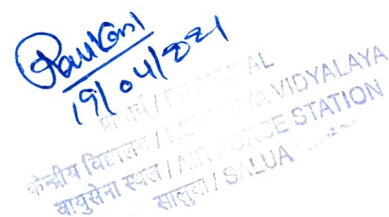 19/04/2021
प्राचार्य / PRINCIPAL
केन्द्रीय विद्यालय / KENDRIYA VIDYALAYA
वायुसेना स्थल / AIR FORCE STATION
सालुवा / SALUA